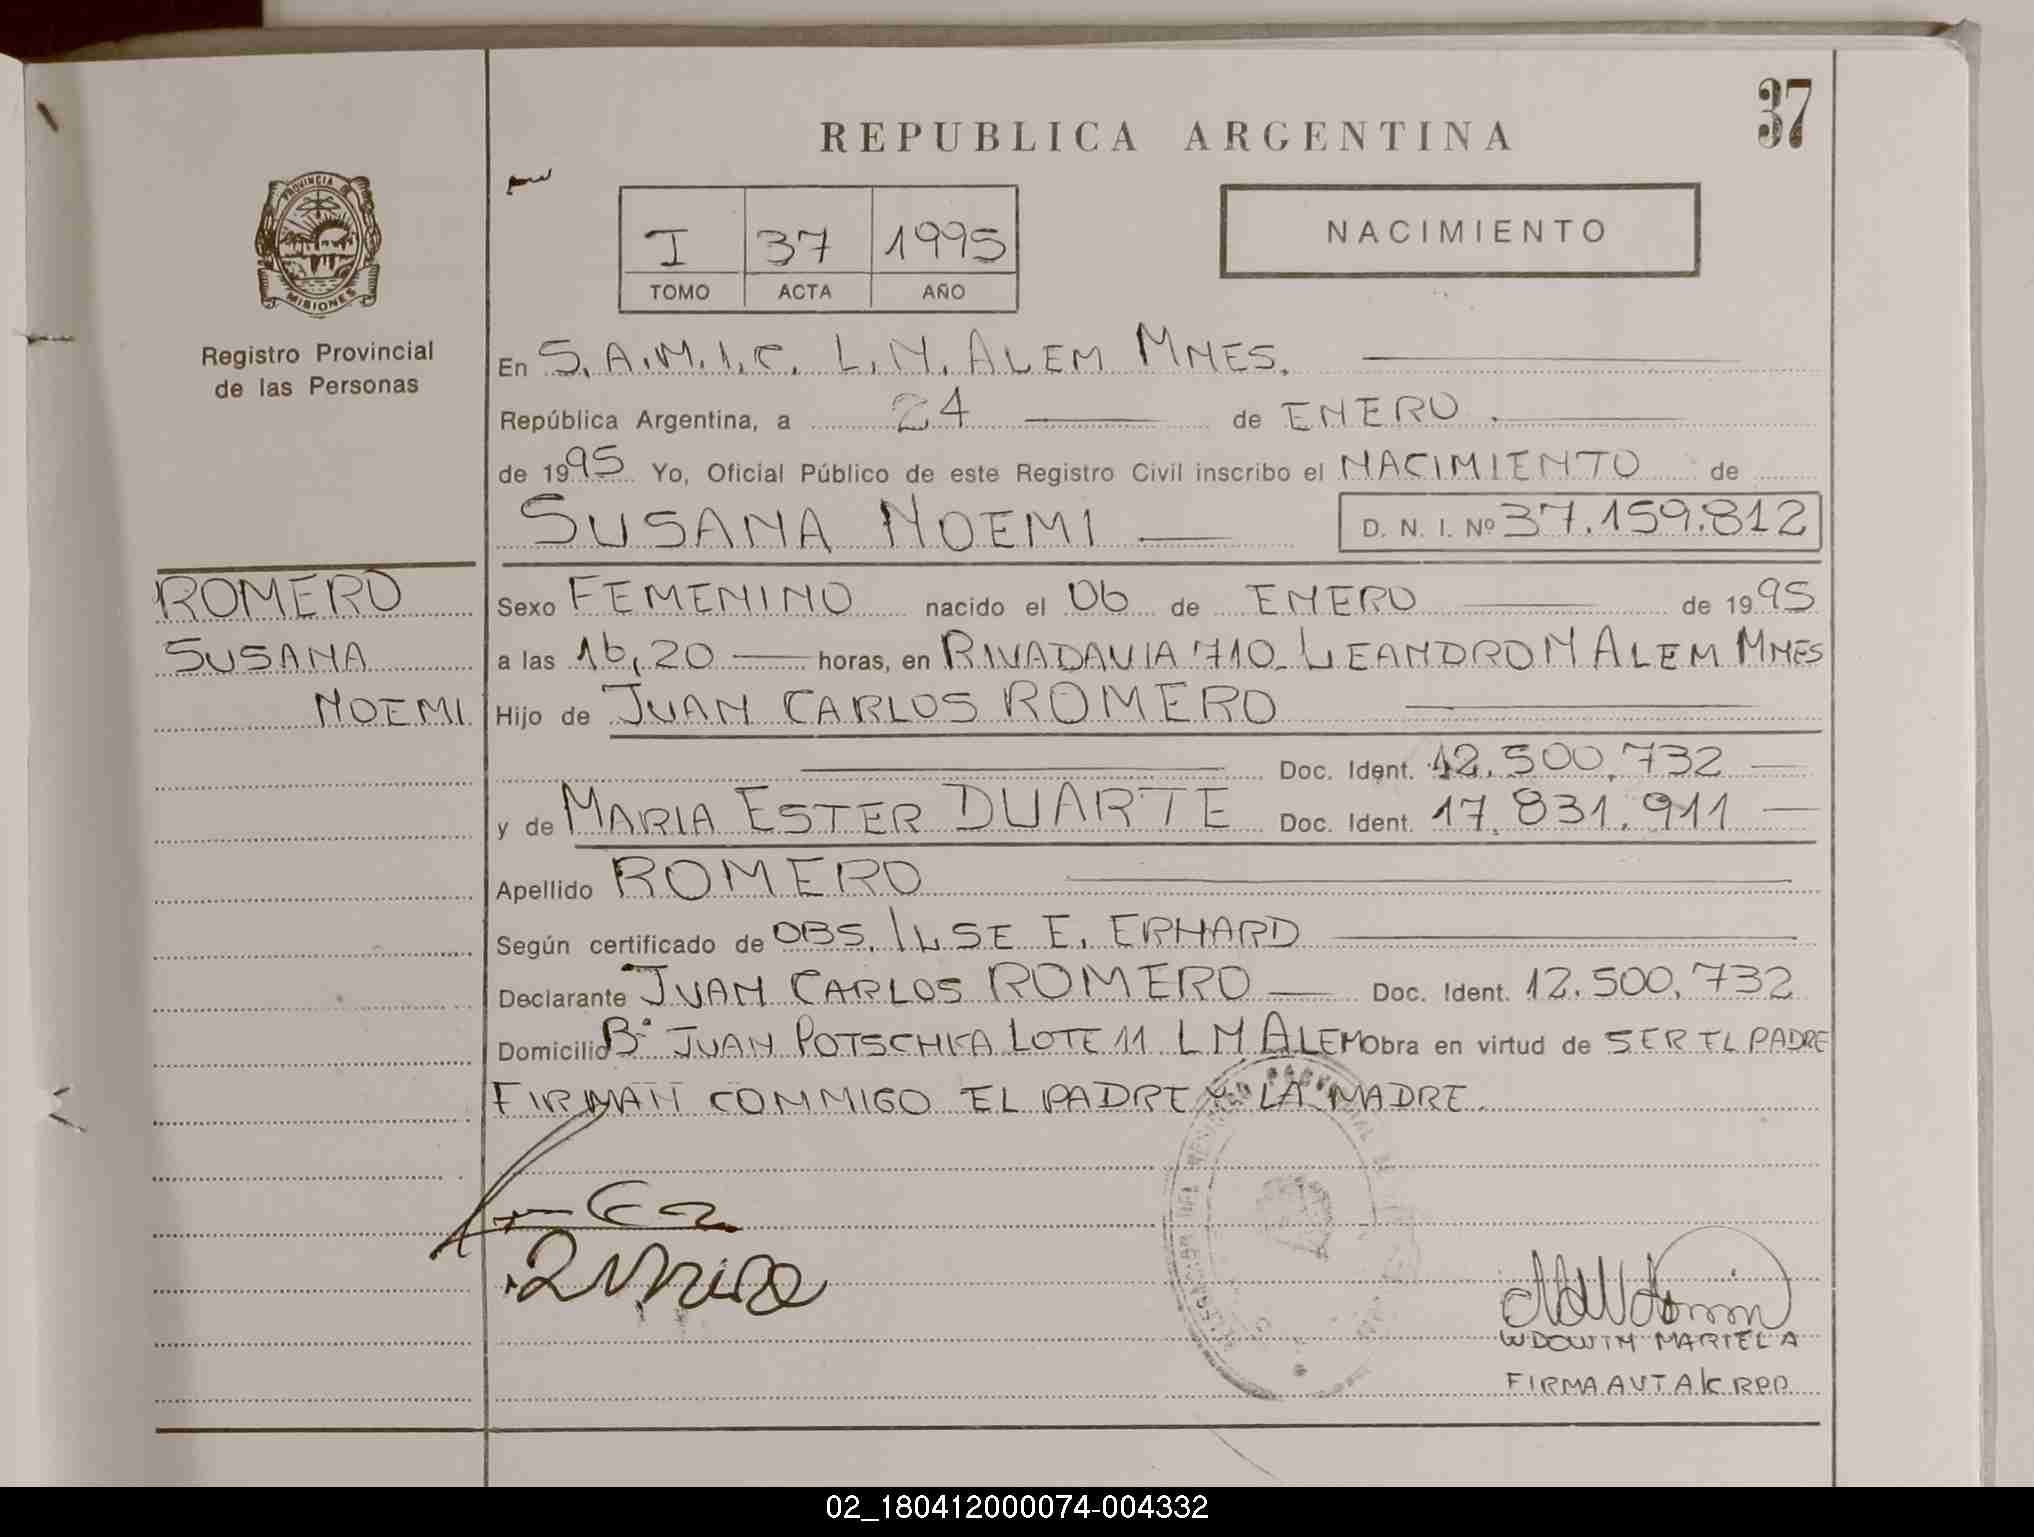 37
REPUBLICA ARGENTINA
PROVINCIA DE
MISIONES
Registro Provincial
de las Personas
I 37 1995
TOMO ACTA AÑO
NACIMIENTO
En S.A.M.I.C. L.N. ALEM MNES.
República Argentina, a 24 de ENERO.
de 1995 Yo, Oficial Público de este Registro Civil inscribo el NACIMIENTO de
SUSANA NOEMI D. N. I. Nº 37.159.812
ROMERO
SUSANA
NOEMI
Sexo FEMENINO nacido el 06 de ENERO de 1995
a las 16,20 horas, en RIVADAVIA 710_ LEANDRO N ALEM MNES
Hijo de JUAN CARLOS ROMERO
Doc. Ident. 12.500.732
y de MARIA ESTER DUARTE Doc. Ident. 17.831.911
Apellido ROMERO
Según certificado de OBS. ILSE E. ERHARD
Declarante JUAN CARLOS ROMERO Doc. Ident. 12.500.732
Domicilio Bº JUAN POTSCHKA LOTE 11 L N ALEM obra en virtud de SER EL PADRE
FIRMAN CONMIGO EL PADRE Y LA MADRE.
WDOWIN MARIELA
FIRMA AUT A/C RPP
02_180412000074-004332